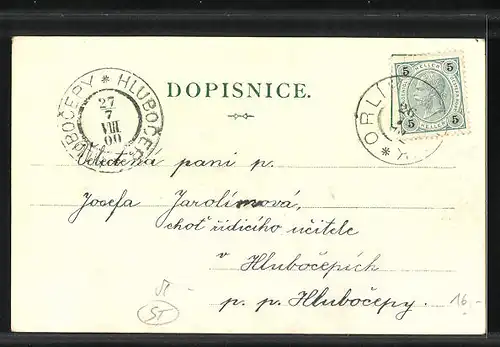 HLUBOČEPY * HLUBOČEPY
27
7
VIII
00
DOPISNICE.
5 5
HELLER HELLER
5 5
ORLÍ
26
Velectená paní p.
Josefa Jarolímová,
choť řídícího učitele
v Hlubočepích
p. p. Hlubočepy.
ST
16.-